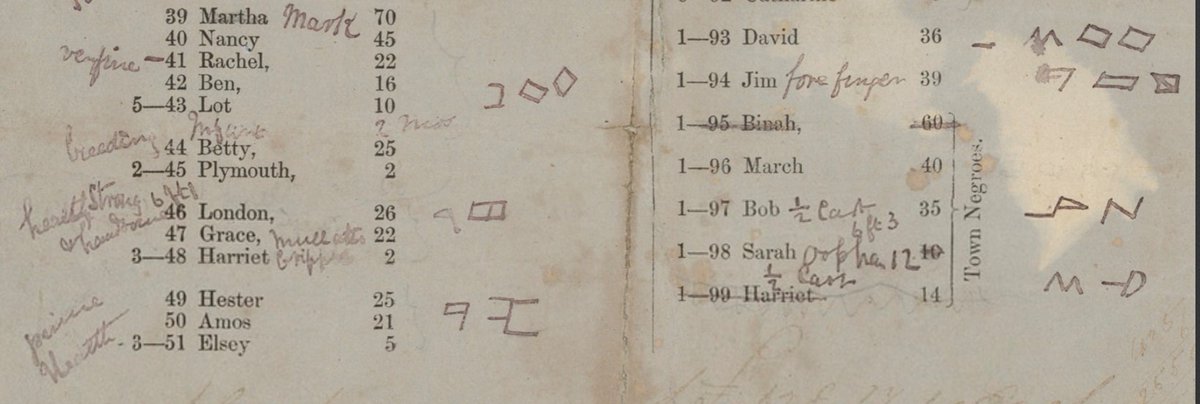 39 Martha Mark 70
40 Nancy 45
very fine — 41 Rachel, 22
42 Ben, 16
5—43 Lot 10
breeding Infant 2 mos
44 Betty, 25
2—45 Plymouth, 2
healthy Strong 6 ft 1
& handsome 46 London, 26
47 Grace, mullatto 22
3—48 Harriet Cripple 2
49 Hester 25
prime 50 Amos 21
Health - 3—51 Elsey 5
1—93 David 36
1—94 Jim fore finger 39
1—95 Binah, 60
1—96 March 40
1—97 Bob ½ Cast 35
6 ft 3
1—98 Sarah orphan 12 10
½ Cast
1—99 Harriet 14
Town Negroes.